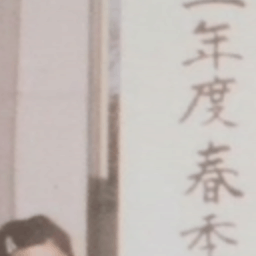 年度春季